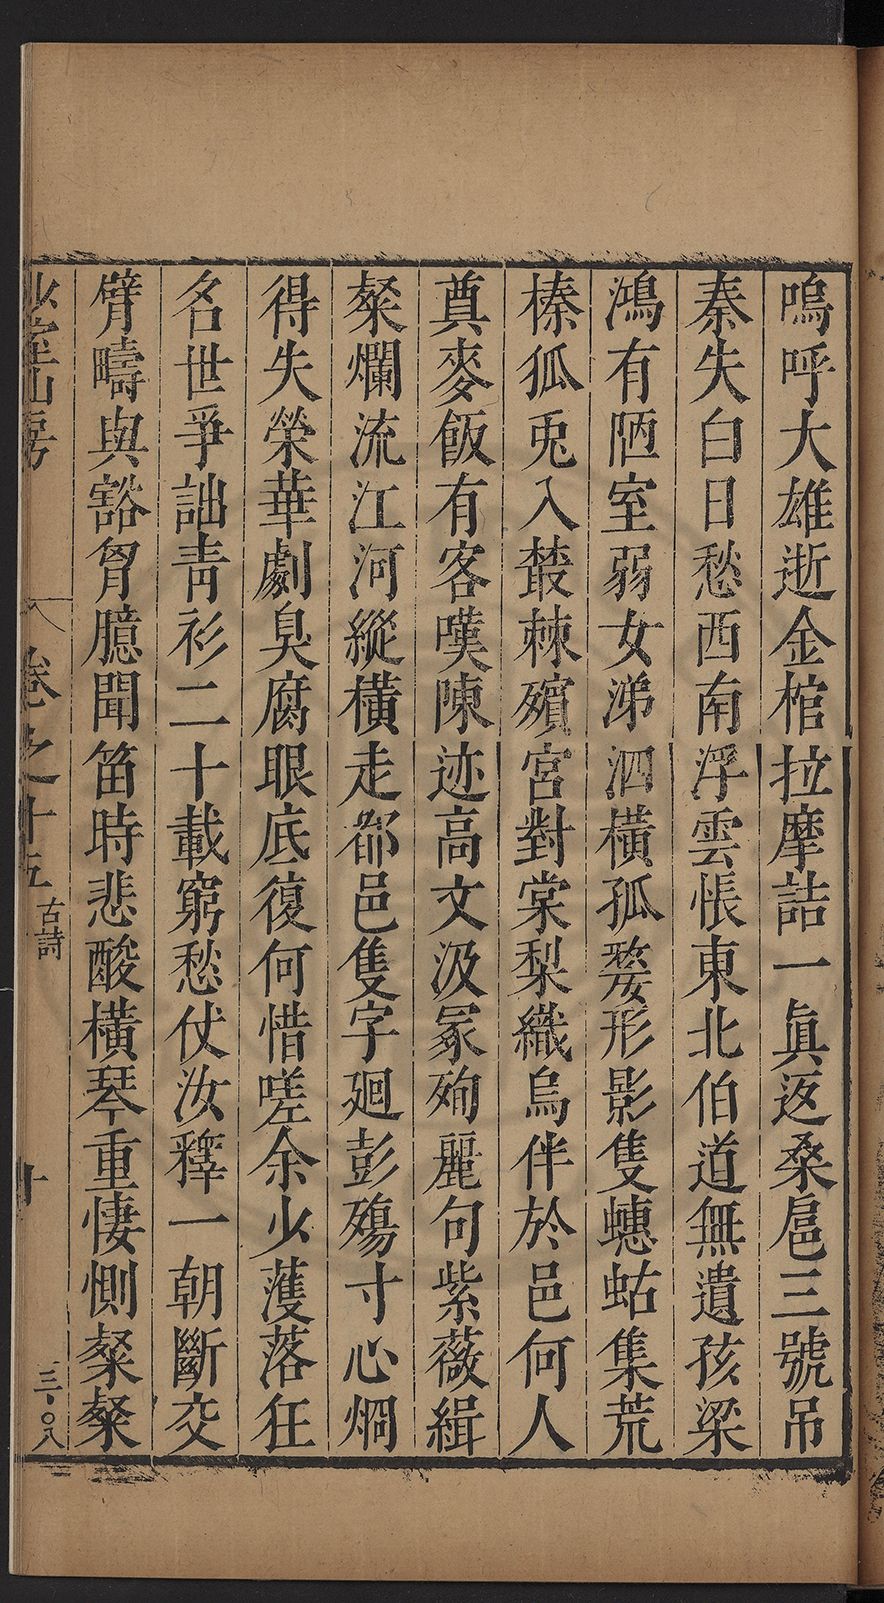 嗚呼大雄逝金棺拉摩詰一眞返桑扈三號吊
秦失白日愁西南浮雲悵東北伯道無遺孩梁
鴻有陋室弱女涕泗橫孤嫠形影隻蟪蛄集荒
榛狐兎入叢棘殯宮對棠梨織烏伴於邑何人
奠麥飯有客嘆陳迹高文汲冢殉麗句紫薇緝
粲爛流江河縱橫走都邑隻字廻彭殤寸心烱
得失榮華劇臭腐眼底復何惜嗟余少蓬落狂
名世爭詘靑衫二十載窮愁仗汝釋一朝斷交
臂疇與豁胷臆聞笛時悲酸橫琴重悽惻粲粲
少室山房
卷之十五
古詩
十
三〇八